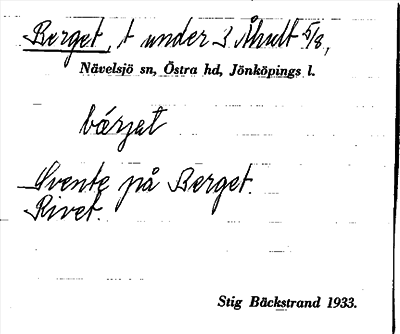 Berget, t under 3 Åhult 5/8,
Nävelsjö sn, Östra hd, Jönköpings l.
bárjat
Svente på Berget.
Rivet.
Stig Bäckstrand 1933.